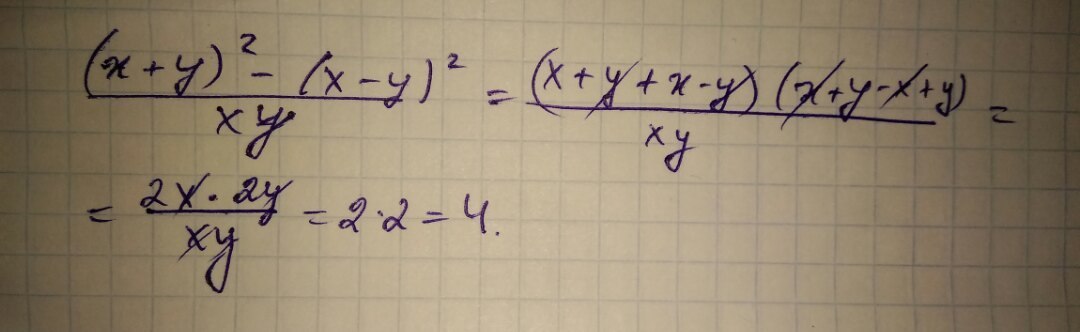 ((x+y)² - (x-y)²)/(xy) = ((x+y+x-y)(x+y-x+y))/(xy) =
= (2x·2y)/(xy) = 2·2 = 4.